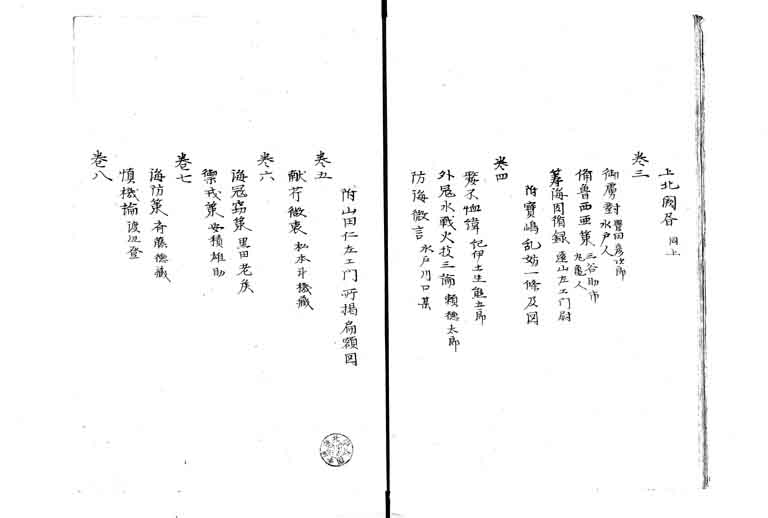 上北闕書 同上
巻三
御虜對 豊田彦次郎 水戸人
備魯西亜策 三谷助市 丸亀人
籌海因循録 遠山左エ門尉
附寶嶋乱妨一條及図
巻四
嫠不恤緯 紀伊土生熊五郎
外冦水戦火技三論 頼徳太郎
防海微言 水戸川口某
附山田仁左エ門所掲扁額図
巻五
献芹微衷 松本斗機藏
巻六
海冦窃策 黒田老侯
禦戎策 安積雄助
巻七
海防策 斉藤徳藏
慎機論 渡辺登
巻八